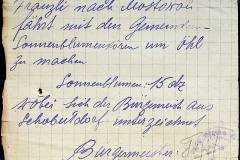 Franzli nach Mostovoi
fährt mit den Gemeinden-
sonnenblumenkören um Öhl
zu machen
Sonnenblumen: 15 dz
wobei sich der Bürgermeist aus
Schoberdorf unterzeichnet
Bürgermeister: